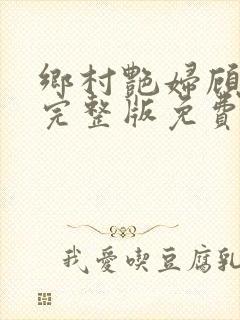 鄉村艷婦顧
完整版免費
我愛喫豆腐乳